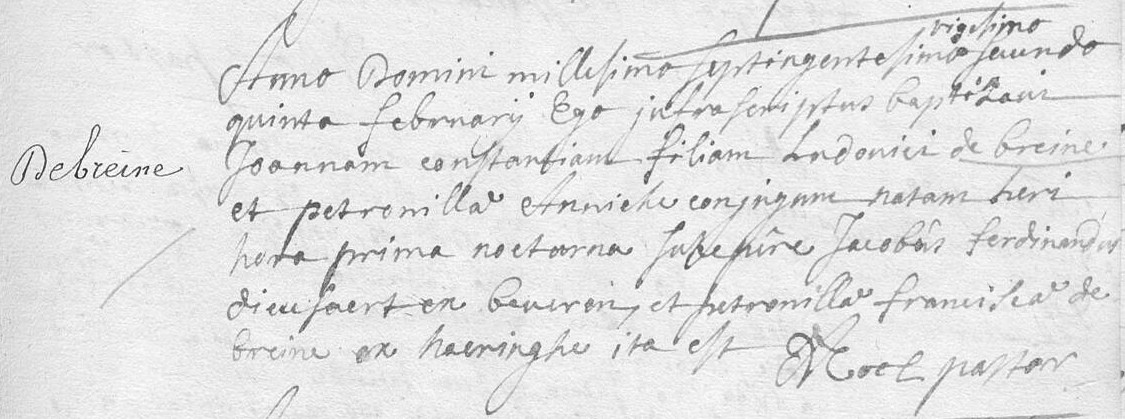 vigesimo
Anno Domini millesimo septingentesimo secundo
quinta february Ego infrascriptus baptizavi
Debreine
Joannam constantiam filiam Ludovici de breine
et petronilla Annicke conjugum natam heri
hora prima nocturna suscepere Jacobus ferdinandus
dieusaert ex beveren, et petronilla francisca de
breine ex haeringhe ita est
Moel pastor